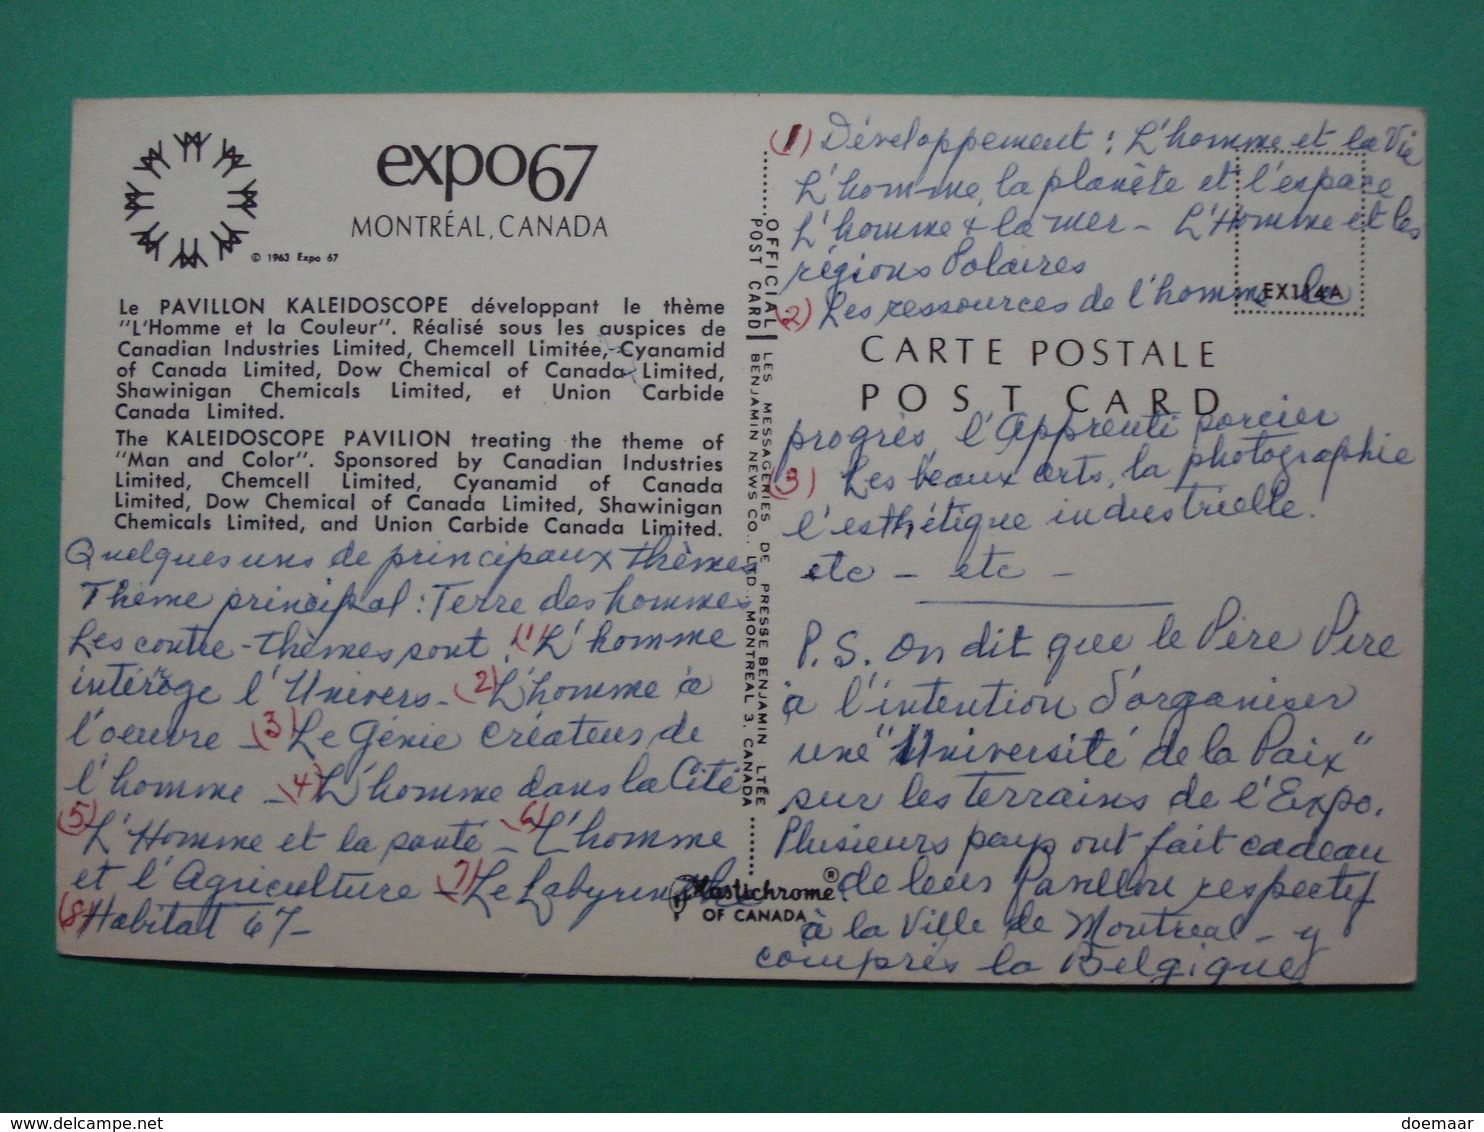 expo67
MONTRÉAL, CANADA
© 1963 Expo 67
Le PAVILLON KALEIDOSCOPE développant le thème
"L'Homme et la Couleur". Réalisé sous les auspices de
Canadian Industries Limited, Chemcell Limitée, Cyanamid
of Canada Limited, Dow Chemical of Canada Limited,
Shawinigan Chemicals Limited, et Union Carbide
Canada Limited.
The KALEIDOSCOPE PAVILION treating the theme of
"Man and Color". Sponsored by Canadian Industries
Limited, Chemcell Limited, Cyanamid of Canada
Limited, Dow Chemical of Canada Limited, Shawinigan
Chemicals Limited, and Union Carbide Canada Limited.
Quelques uns de principaux thèmes
Thème principal : Terre des hommes
Les contre-thèmes sont : (1) L'homme
intéroge l'Univers - (2) L'homme à
l'oeuvre - (3) Le Génie créateur de
l'homme - (4) L'homme dans la Cité
(5) L'Homme et la santé - (6) L'homme
et l'Agriculture - (7) Le Labyrinthe
(8) Habitat 67 -
OFFICIAL POST CARD
LES MESSAGERIES DE PRESSE BENJAMIN LTÉE
BENJAMIN NEWS CO., LTD., MONTREAL 3, CANADA
Plastichrome®
OF CANADA
(1) Développement : L'homme et la Vie
L'homme, la planète et l'espace
L'homme & la mer - L'Homme et les
régions Polaires
(2) Les ressources de l'homme le
EX114A
CARTE POSTALE
POST CARD
progrès, l'Apprenti sorcier
(3) Les beaux arts, la photographie
l'esthétique industrielle.
etc - etc -
P.S. On dit que le Père Pire
a l'intention d'organiser
une "Université de la Paix"
sur les terrains de l'Expo.
Plusieurs pays ont fait cadeau
de leur Pavillon respectif
à la Ville de Montreal - y
compris la Belgique
doemaar